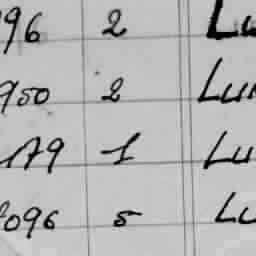 96 2 Lu
950 2 Lu
179 1 Lu
096 5 Lu